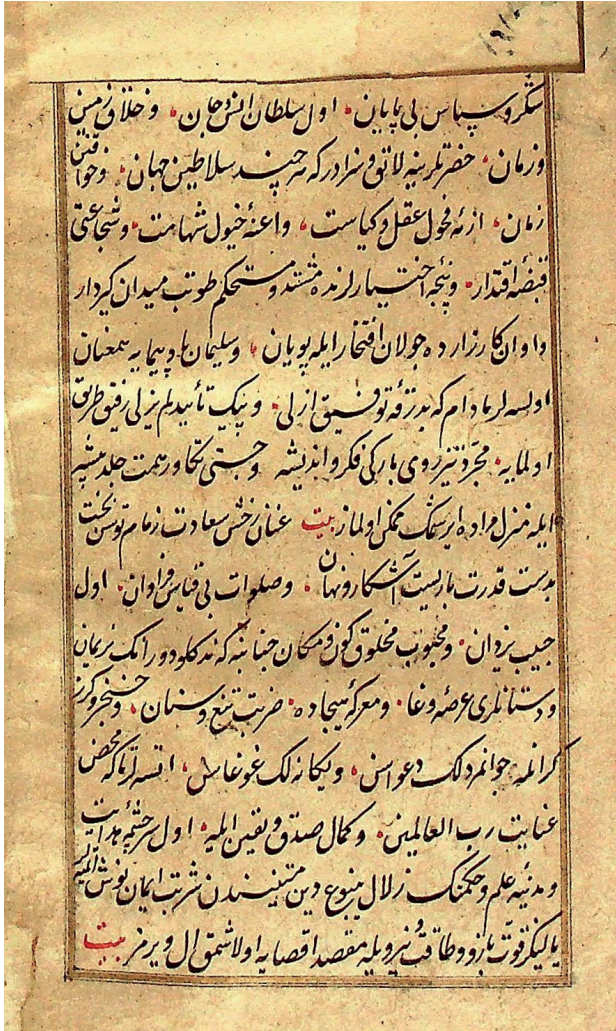 شکر و سپاس بی پایان اول سلطان انس و جان و خلاق زمین
و زمان حضرتلرینه لایق و سزادر که هر چند سلاطین جهان و خواقین
زمان ازمهٔ فحول عقل و کیاست و اعنهٔ خیول شهامت و شجاعتی
قبضهٔ اقتدار و پنجهٔ اختیارلرنده مشتد و مستحکم طوتب میدان کیردار
و اوان کارزارده جولان افتخار ایله پویان و سلیمان بادپیمایه همعنان
اولسه‌لر مادام که بدرقهٔ توفیق ازلی و پیک تأیید لم یزلی رفیق طریق
اولمایه مجرد تیزروی بارکی فکر و اندیشه و جستی تکاور همت جلد پیشه
ایله منزل مراده ایرشمک ممکن اولماز بیت عنان رخش سعادت زمام توسن بخت
بدست قدرت باریست آشکار و نهان و صلوات بی قیاس فراوان اول
حبیب یزدان و محبوب مخلوق کون و مکان جنابنه که
و دستانلری عرصهٔ وغا و معرکهٔ هیجاده ضربت تیغ و سنان و خنجر و کرز
کرانله جوانمردلک دعواسن و یکانه‌لک غوغاسن ایتسه‌لر تا که محض
عنایت رب العالمین و کمال صدق و یقین ایله اول سرچشمهٔ هدایت
و مدینهٔ علم و حکمتک زلال ینبوع دین متینندن شربت ایمان نوش
یالکز قوت بازو و طاقت و نیرویله مقصد اقصایه اولاشمق ال ویرمز بیت